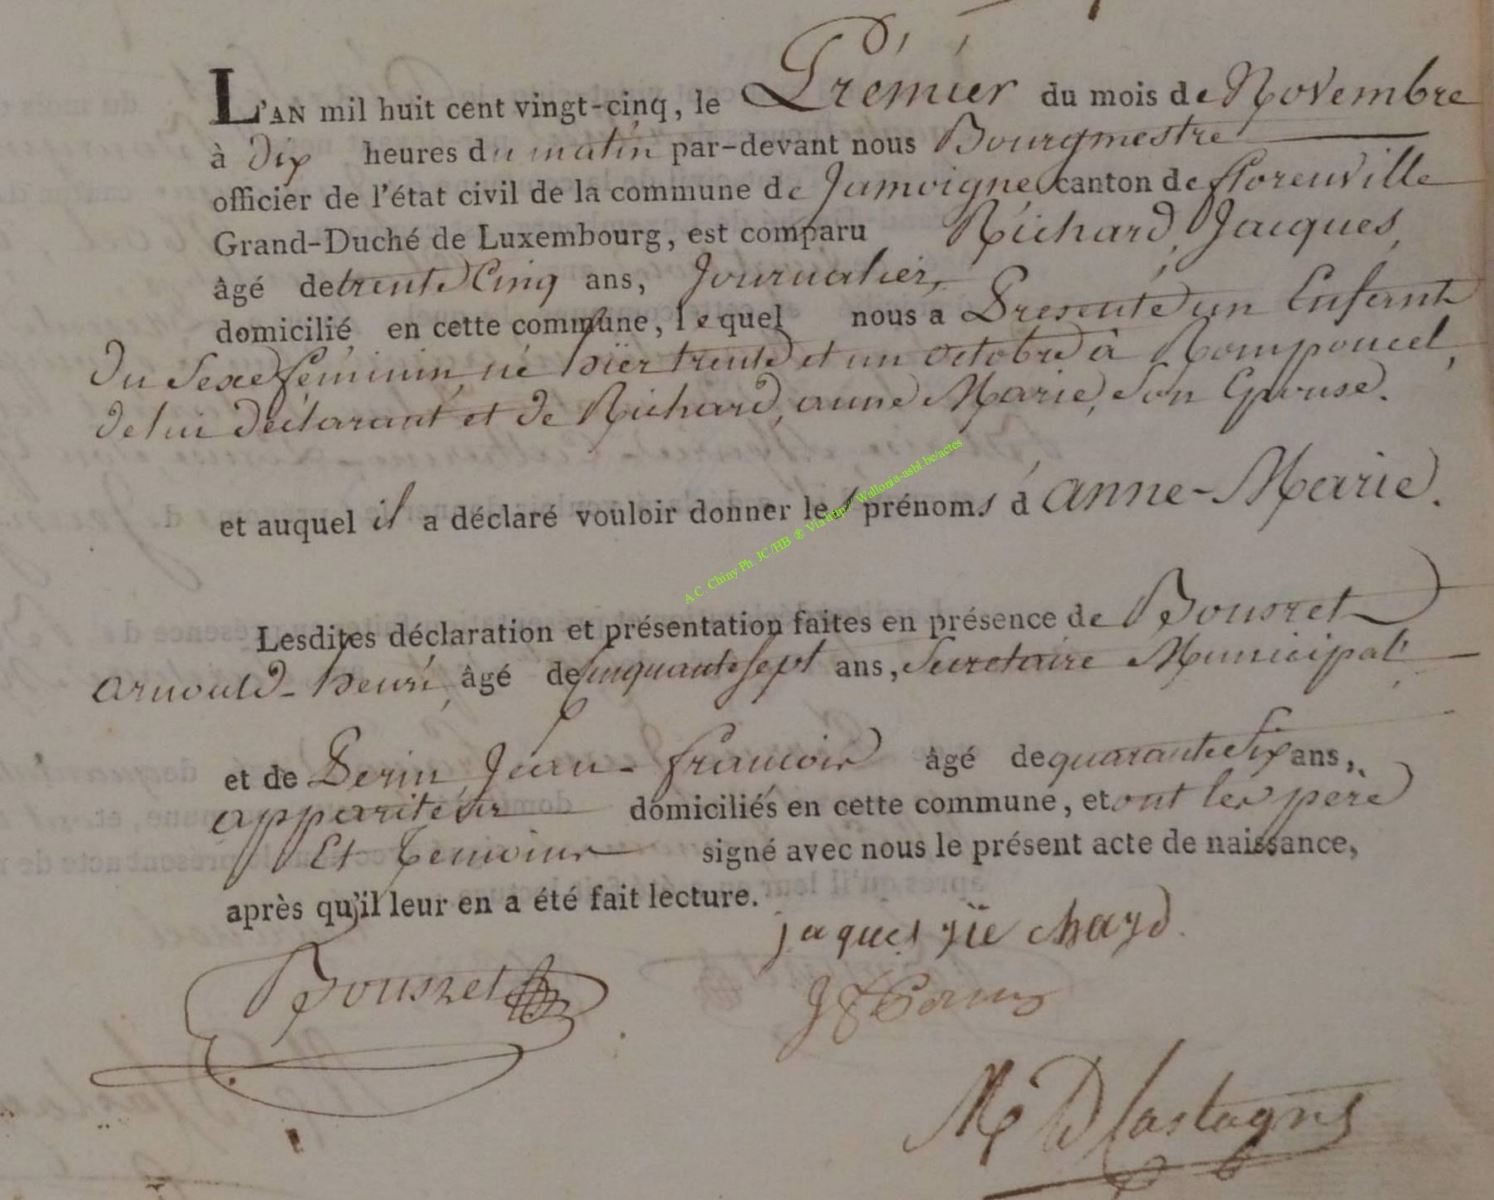 L'AN mil huit cent vingt-cinq, le Prémier du mois de Novembre
à dix heures du matin par-devant nous Bourgmestre
officier de l'état civil de la commune de Jamoigne, canton de florenville
Grand-Duché de Luxembourg, est comparu Richard, Jacques,
âgé de trente Cinq ans, Journalier,
domicilié en cette commune, lequel nous a Presenté un Enfant
du Sexe féminin, né hier trente et un octobre à Romponcel,
de lui déclarant et de Richard, anne Marie, son Epouse.
et auquel il a déclaré vouloir donner les prénoms d'anne-Marie.
A.C. Chiny Ph. JC/HB ® Via http:// Wallonia-asbl.be/actes
Lesdites déclaration et présentation faites en présence de Bousret
arnould-henri, âgé de Cinquante sept ans, Secretaire Municipal
et de Perin Jean-francois âgé de quarante Six ans,
appariteur domiciliés en cette commune, et ont les pere
Et temoins signé avec nous le présent acte de naissance,
après qu'il leur en a été fait lecture.
jaques rie chard
Bousret
J F Perin